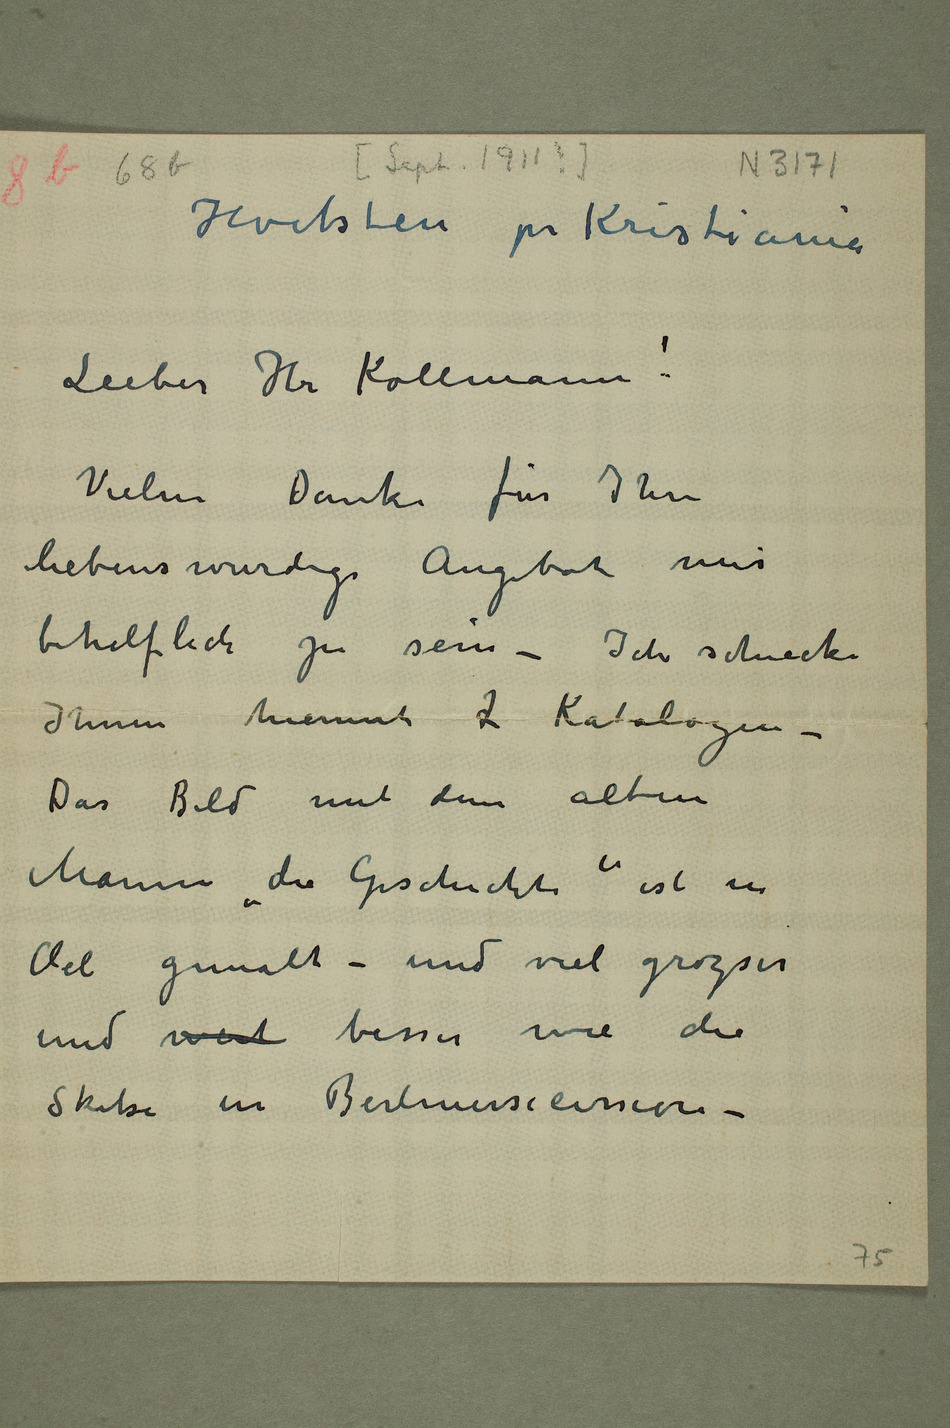 8 b 68b [Sept. 1911?] N 3171
Hvitsten pr Kristiania
Lieber Hr Kollmann!
Vielen Danke für Ihre
liebenswurdige Angebot mir
behilflich zu sein – Ich schiecke
Ihnen hiermit 2 Katalogen –
Das Bild mit dem alten
Mannn „die Geschichte“ ist in
Oel gemalt – und viel grozser
und weit besser wie die
Skitse in Berlinersecession –
75